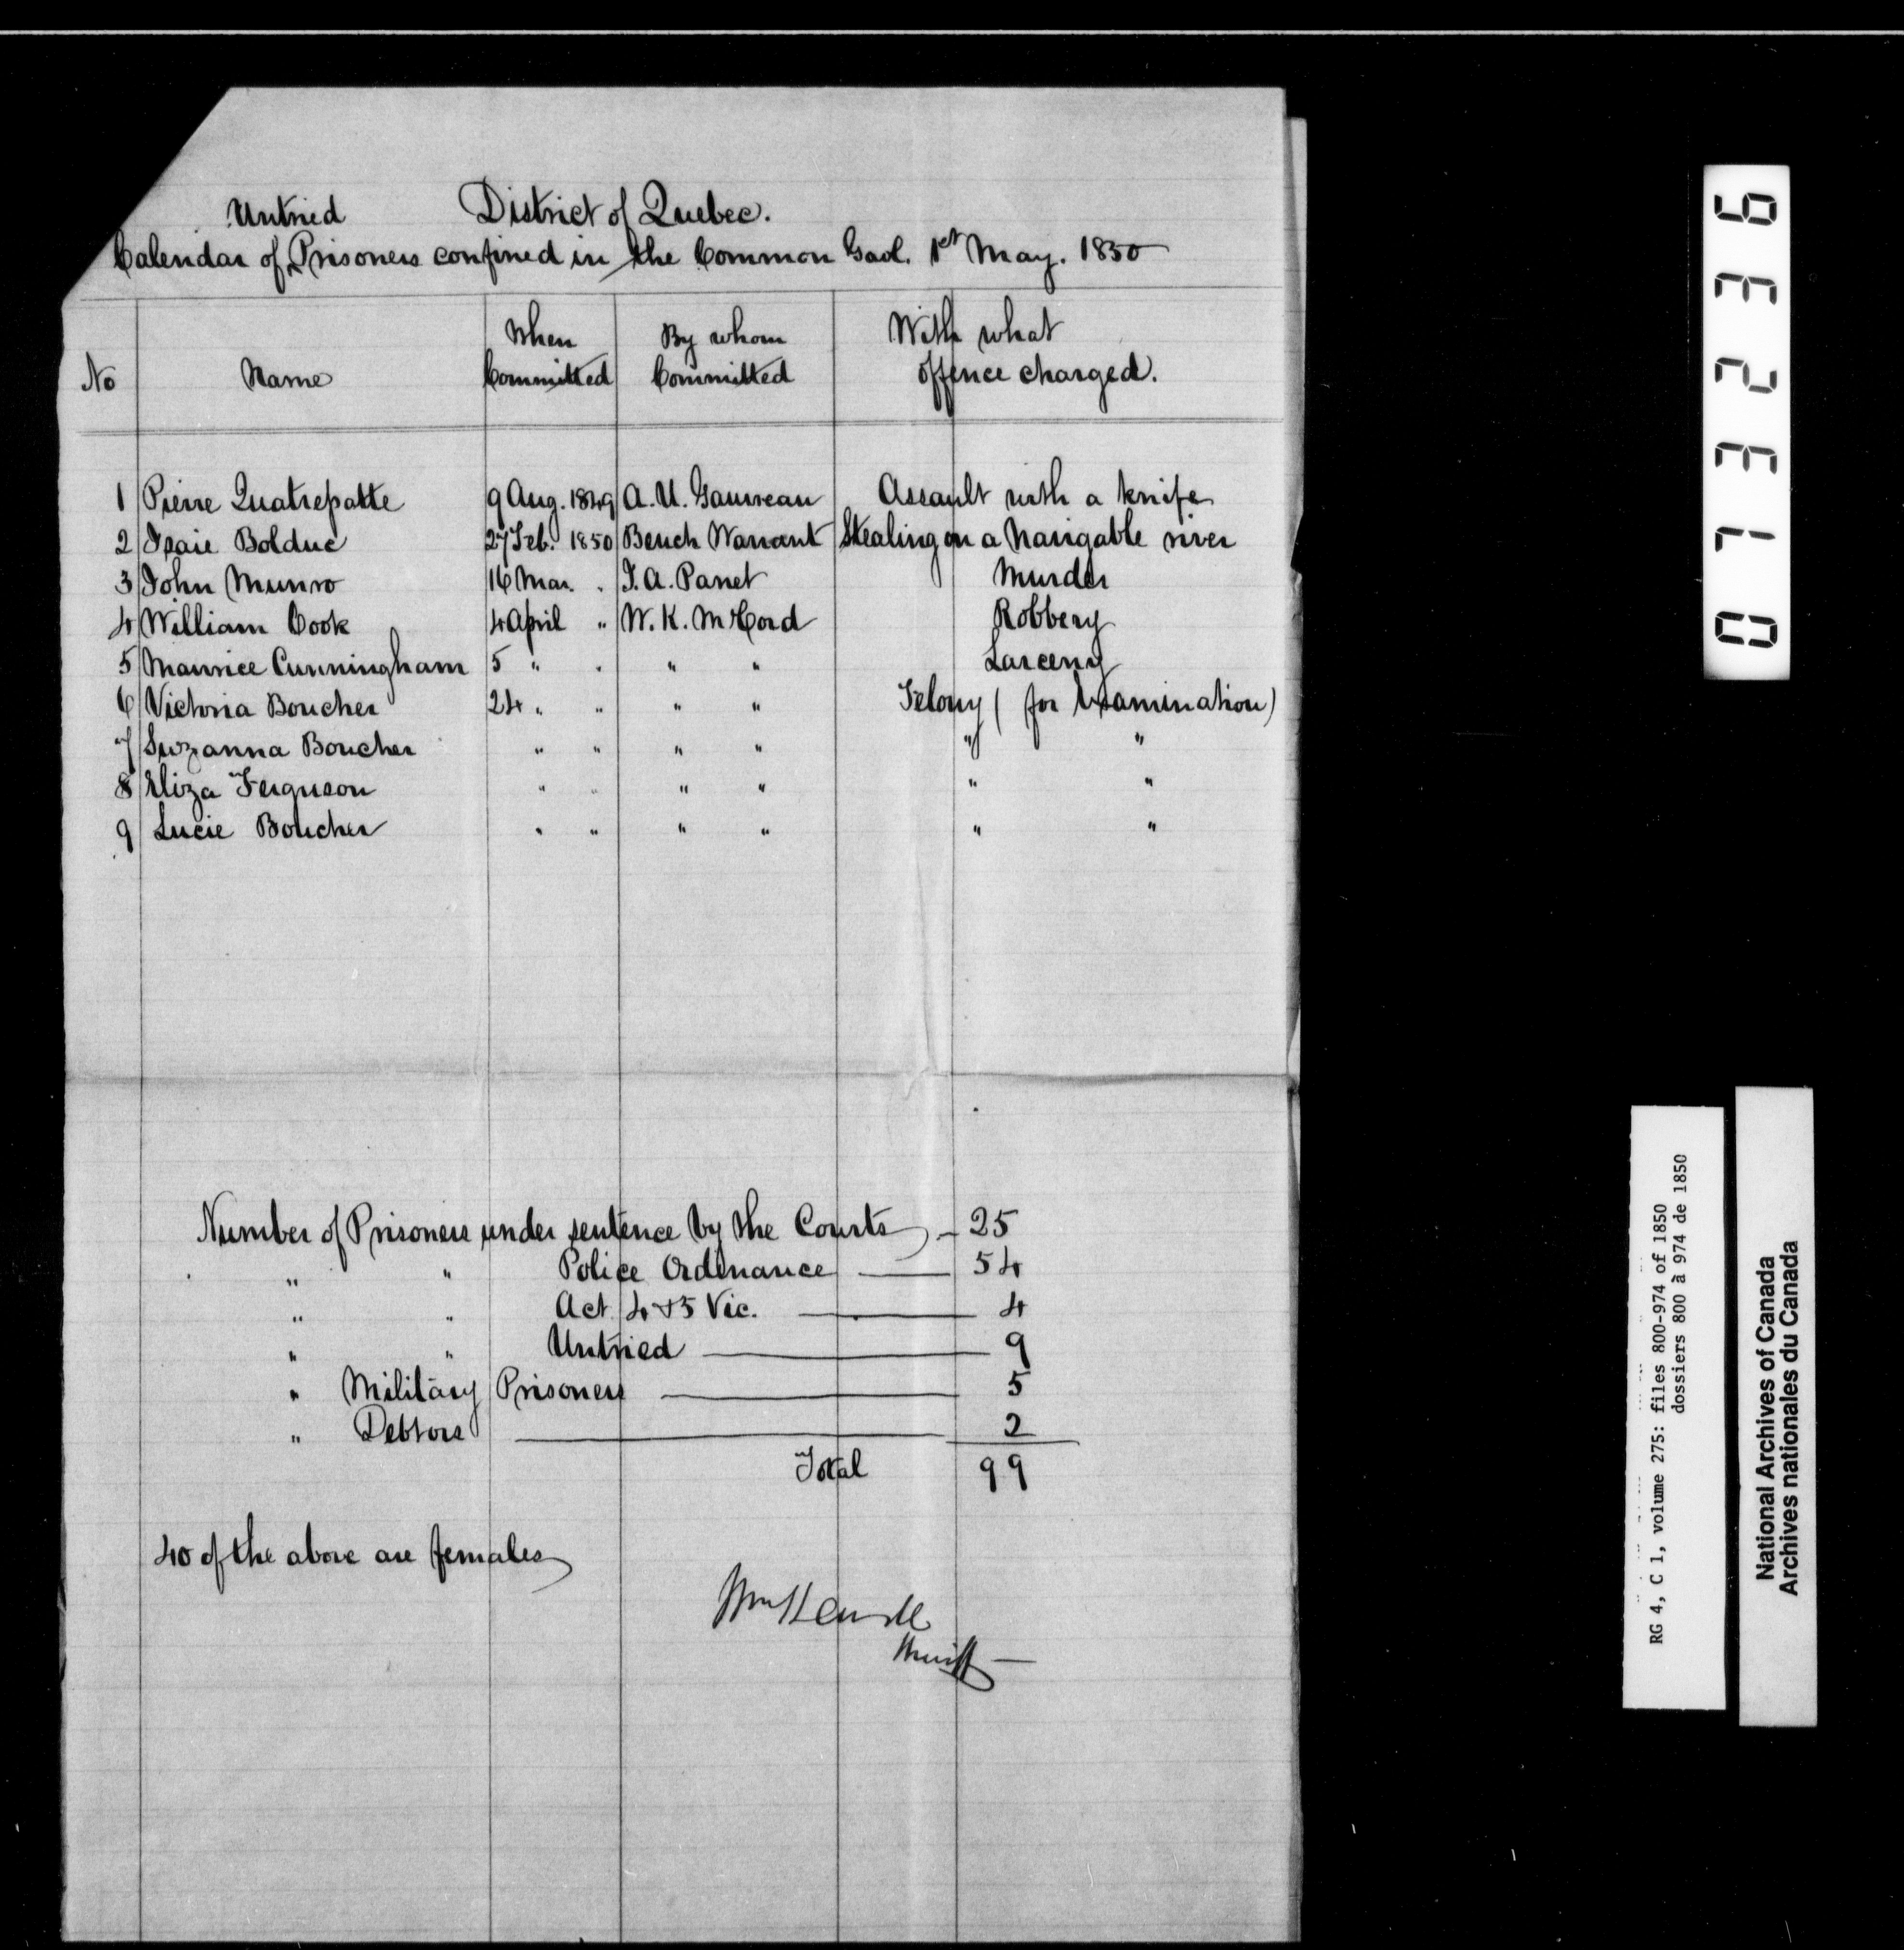 Untried District of Quebec.
Calendar of Prisoners confined in the Common Gaol. 1st May. 1850
No Name When Committed By whom Committed With what offence charged.
1 Pierre Quatrepatte 9 Aug. 1849 A. U. Gauvreau Assault with a knife
2 Isaie Bolduc 27 Feb. 1850 Bench Warrant Stealing on a Navigable river
3 John Munro 16 Mar. " J. A. Panet Murder
4 William Cook 4 April " W. K. McCord Robbery
5 Maurice Cunningham 5 " " " " Larceny
6 Victoria Boucher 24 " " " " Felony ( for Examination )
7 Suzanna Boucher " " " " " "
8 Eliza Ferguson " " " " " "
9 Lucie Boucher " " " " " "
Number of Prisoners under sentence by the Courts – 25
" " Police Ordinance — 54
" " Act 4 & 5 Vic. — 4
" " Untried — 9
" Military Prisoners — 5
" Debtors — 2
Total 99
40 of the above are females
Wm
Sheriff —
073236
RG 4, C 1, volume 275: files 800-974 of 1850
dossiers 800 à 974 de 1850
National Archives of Canada
Archives nationales du Canada